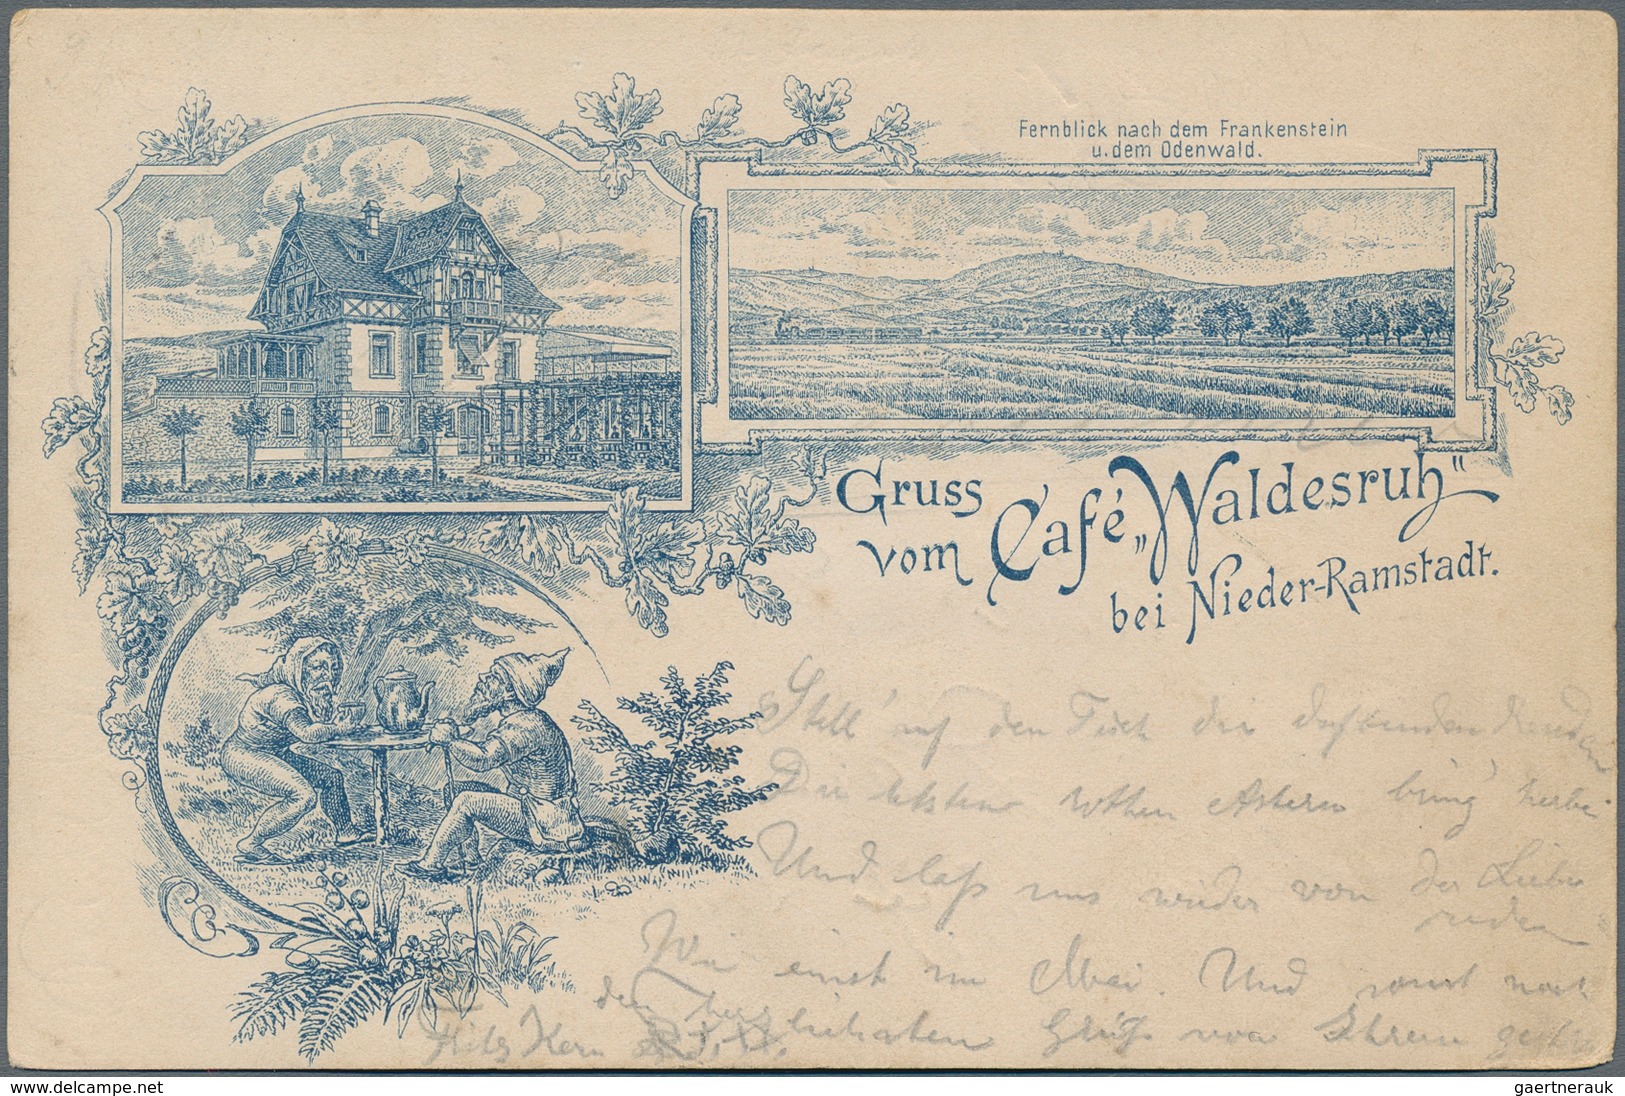 Café
Fernblick nach dem Frankenstein
u. dem Odenwald.
Gruss
vom Café „Waldesruh"
bei Nieder-Ramstadt.
Stell' auf den Tisch die duftenden Reseden
Die letzten rothen Astern bring' herbei
Und laß uns wieder von der Liebe
reden
Wie einst im Mai. Und sonst noch
den herzlichsten Gruß von Ihrem
Fritz Kern
gaertnerauk @ delcampe.net